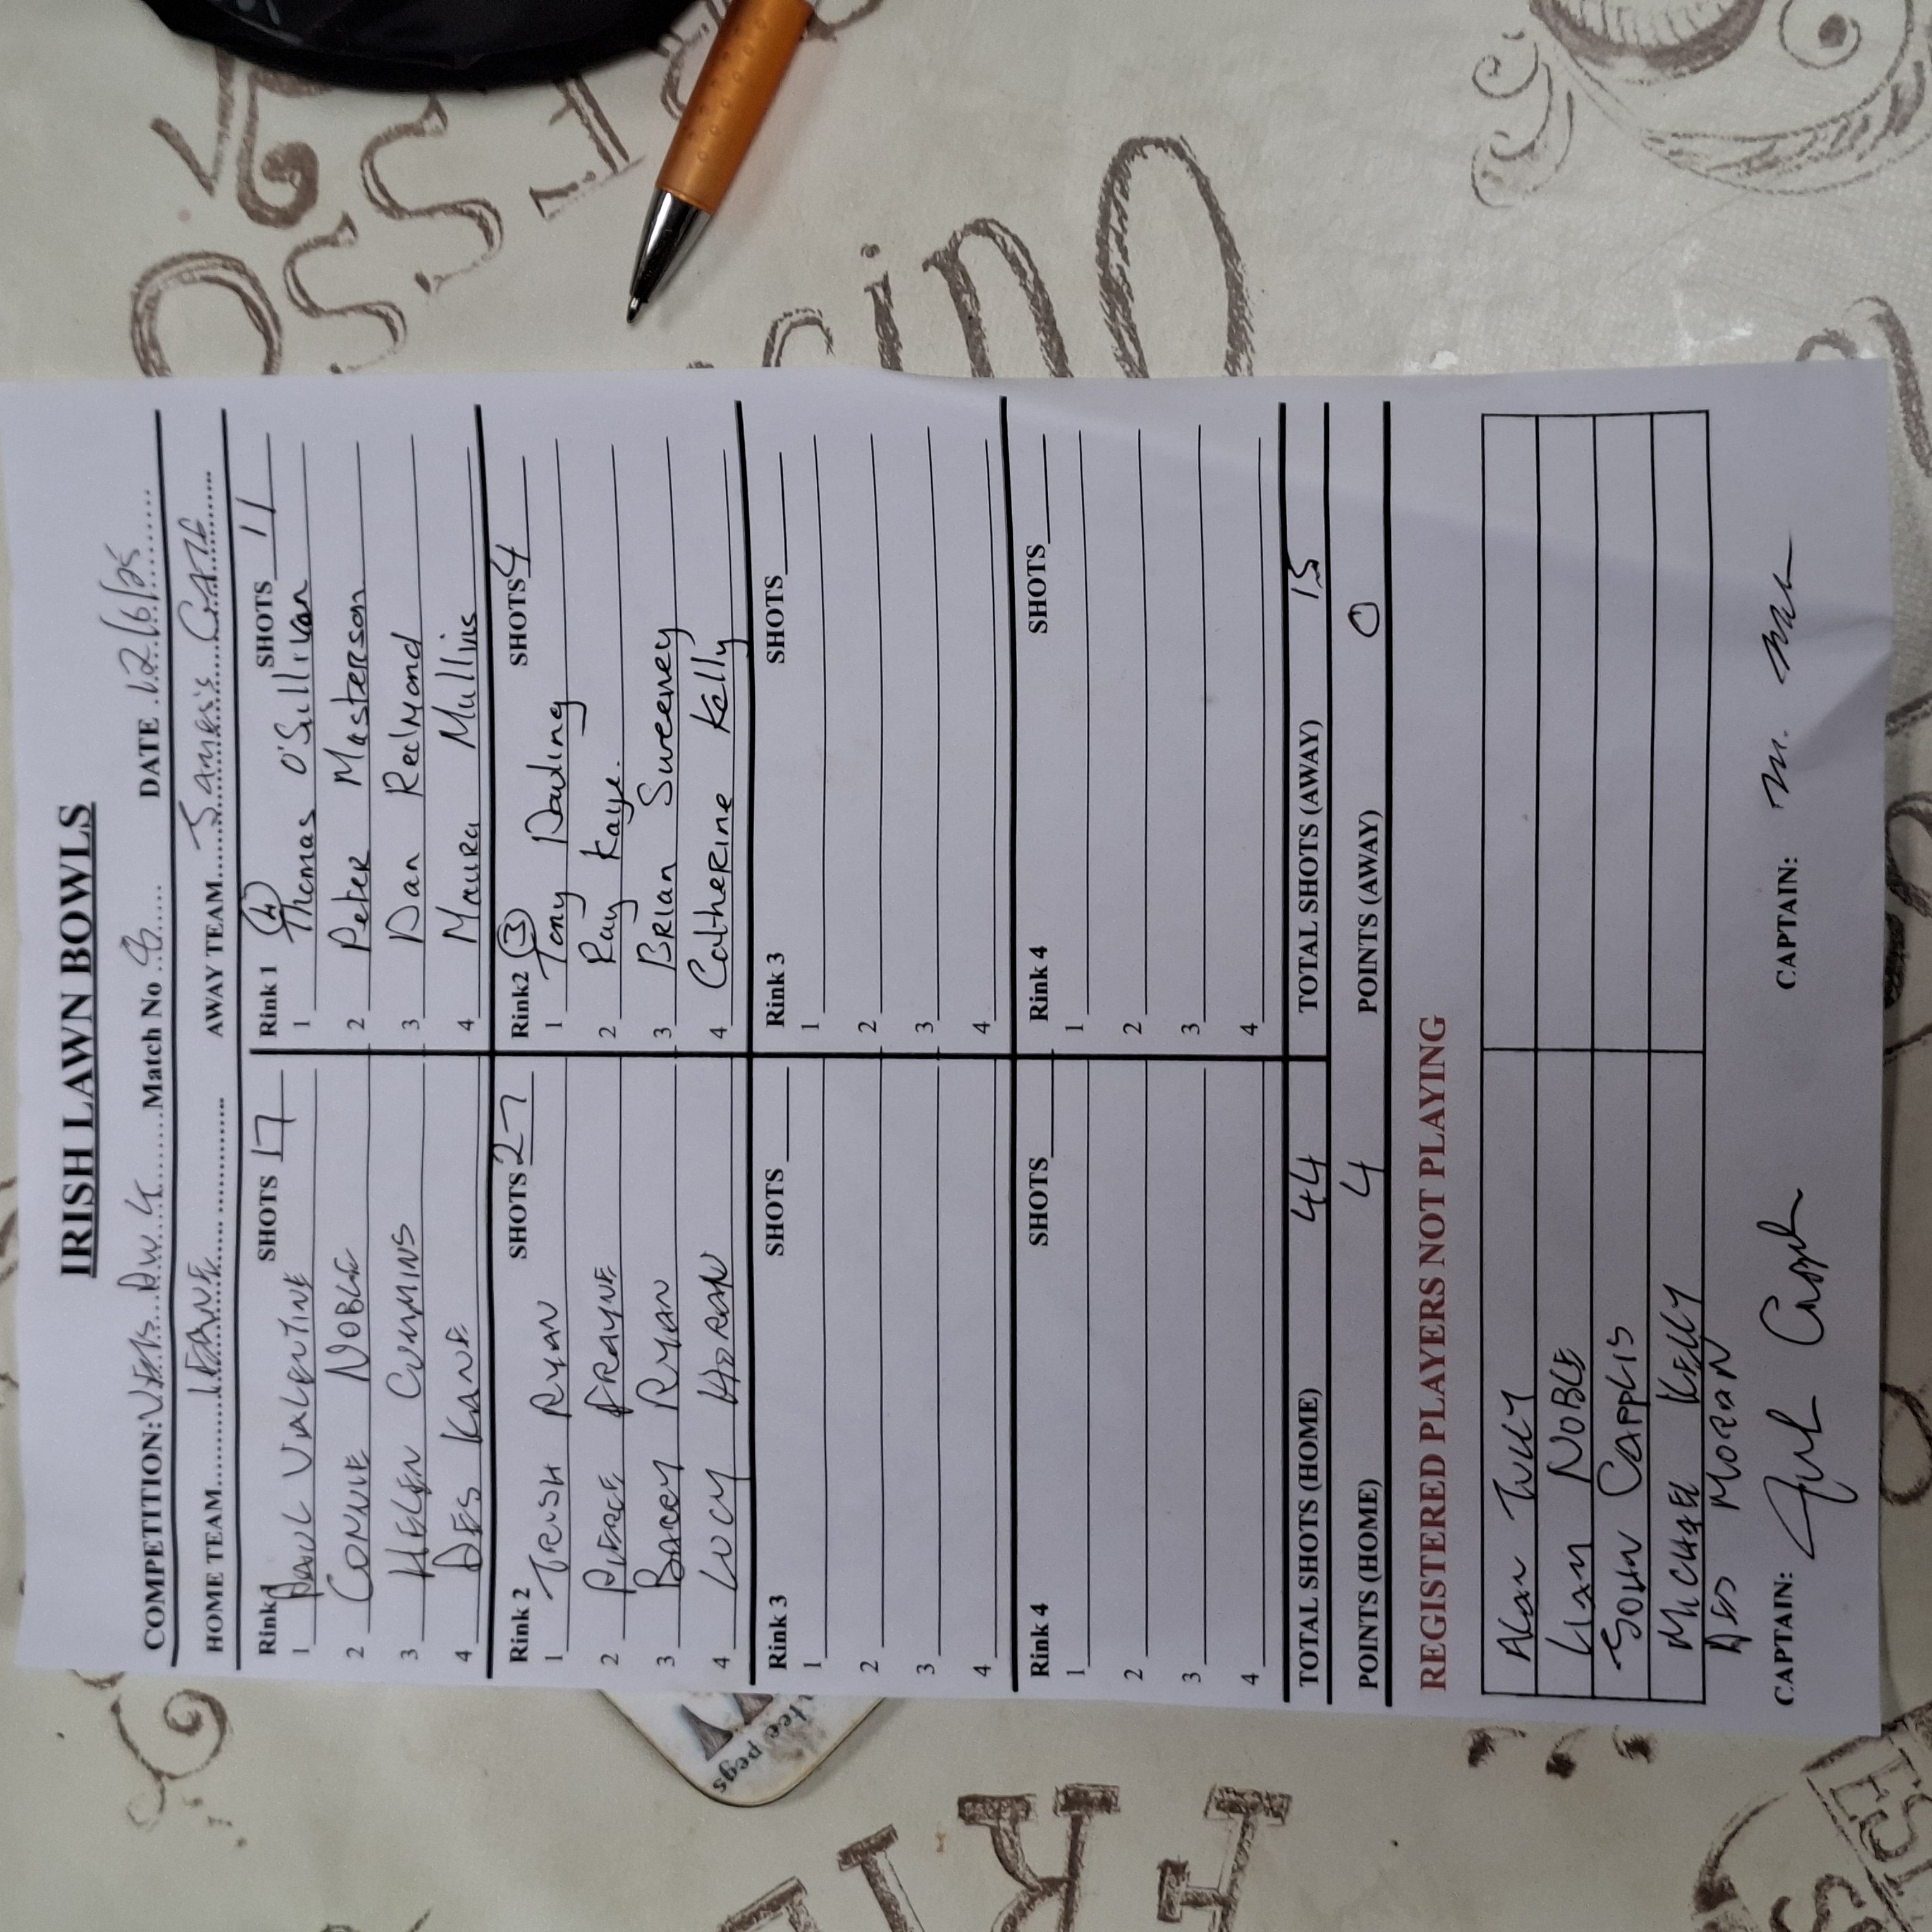 IRISH LAWN BOWLS
COMPETITION: VETS DIV 4 Match No 9 DATE 12/6/25
HOME TEAM LEANE AWAY TEAM James's GATE
Rink 1 SHOTS 17 Rink 1 (4) SHOTS 11
1 PAUL VALENTINE 1 Thomas O'Sullivan
2 CONNIE NOBLE 2 Peter Masterson
3 HELEN CUMMINS 3 Dan Redmond
4 DES KANE 4 Maura Mullins
Rink 2 SHOTS 27 Rink2 (3) SHOTS 4
1 TRISH RYAN 1 Tony Dowling
2 PIERCE FRAYNE 2 Ray Kaye.
3 BARRY RYAN 3 Brian Sweeney
4 LUCY HORAN 4 Catherine Kelly
Rink 3 SHOTS Rink 3 SHOTS
1 1
2 2
3 3
4 4
Rink 4 SHOTS Rink 4 SHOTS
1 1
2 2
3 3
4 4
TOTAL SHOTS (HOME) 44 TOTAL SHOTS (AWAY) 15
POINTS (HOME) 4 POINTS (AWAY) 0
REGISTERED PLAYERS NOT PLAYING
Alan TULLY
Liam NOBLE
JOHN CAPPLIS
MICHAEL KELLY
DES MORAN
CAPTAIN: CAPTAIN:
tee pegs